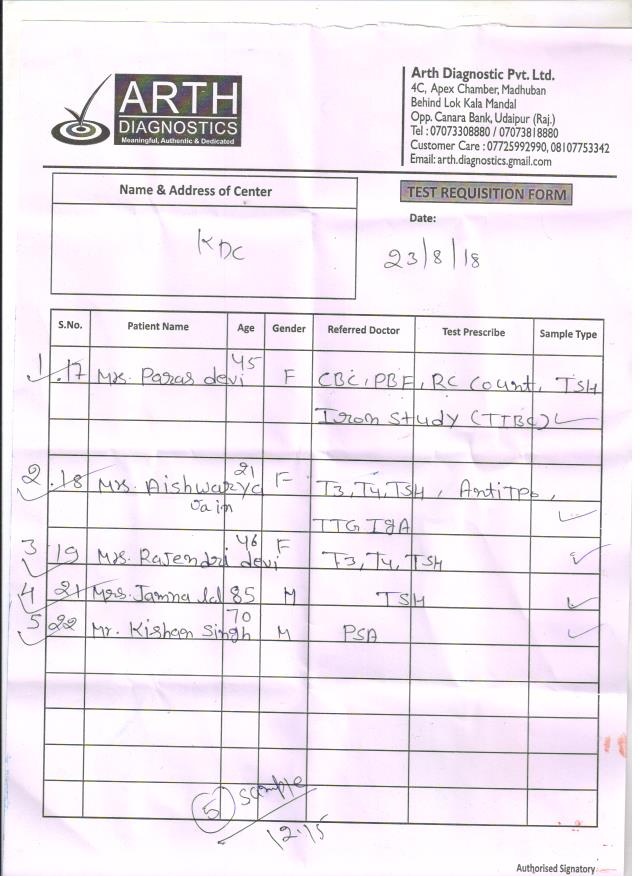 ARTH
DIAGNOSTICS
Meaningful, Authentic & Dedicated
Arth Diagnostic Pvt. Ltd.
4C, Apex Chamber, Madhuban
Behind Lok Kala Mandal
Opp. Canara Bank, Udaipur (Raj.)
Tel : 07073308880 / 07073818880
Customer Care : 07725992990, 08107753342
Email: arth.diagnostics.gmail.com
Name & Address of Center
TEST REQUISITION FORM
KDC
Date:
23/8/18
S.No. Patient Name Age Gender Referred Doctor Test Prescribe Sample Type
1 .17 Mrs. Paras devi 45 F CBC, PBF, RC Count, TSH
Iron Study (TIBC)
2 .18 Mrs. Aishwarya 21 F T3, T4, TSH, AntiTPO,
Jain TTG IgA
3 19 Mrs. Rajendri devi 46 F T3, T4, TSH
4 21 Mrs. Jamna lal 85 M TSH
5 22 Mr. Kishan Singh 70 M PSA
5 sample
12.15
Authorised Signatory